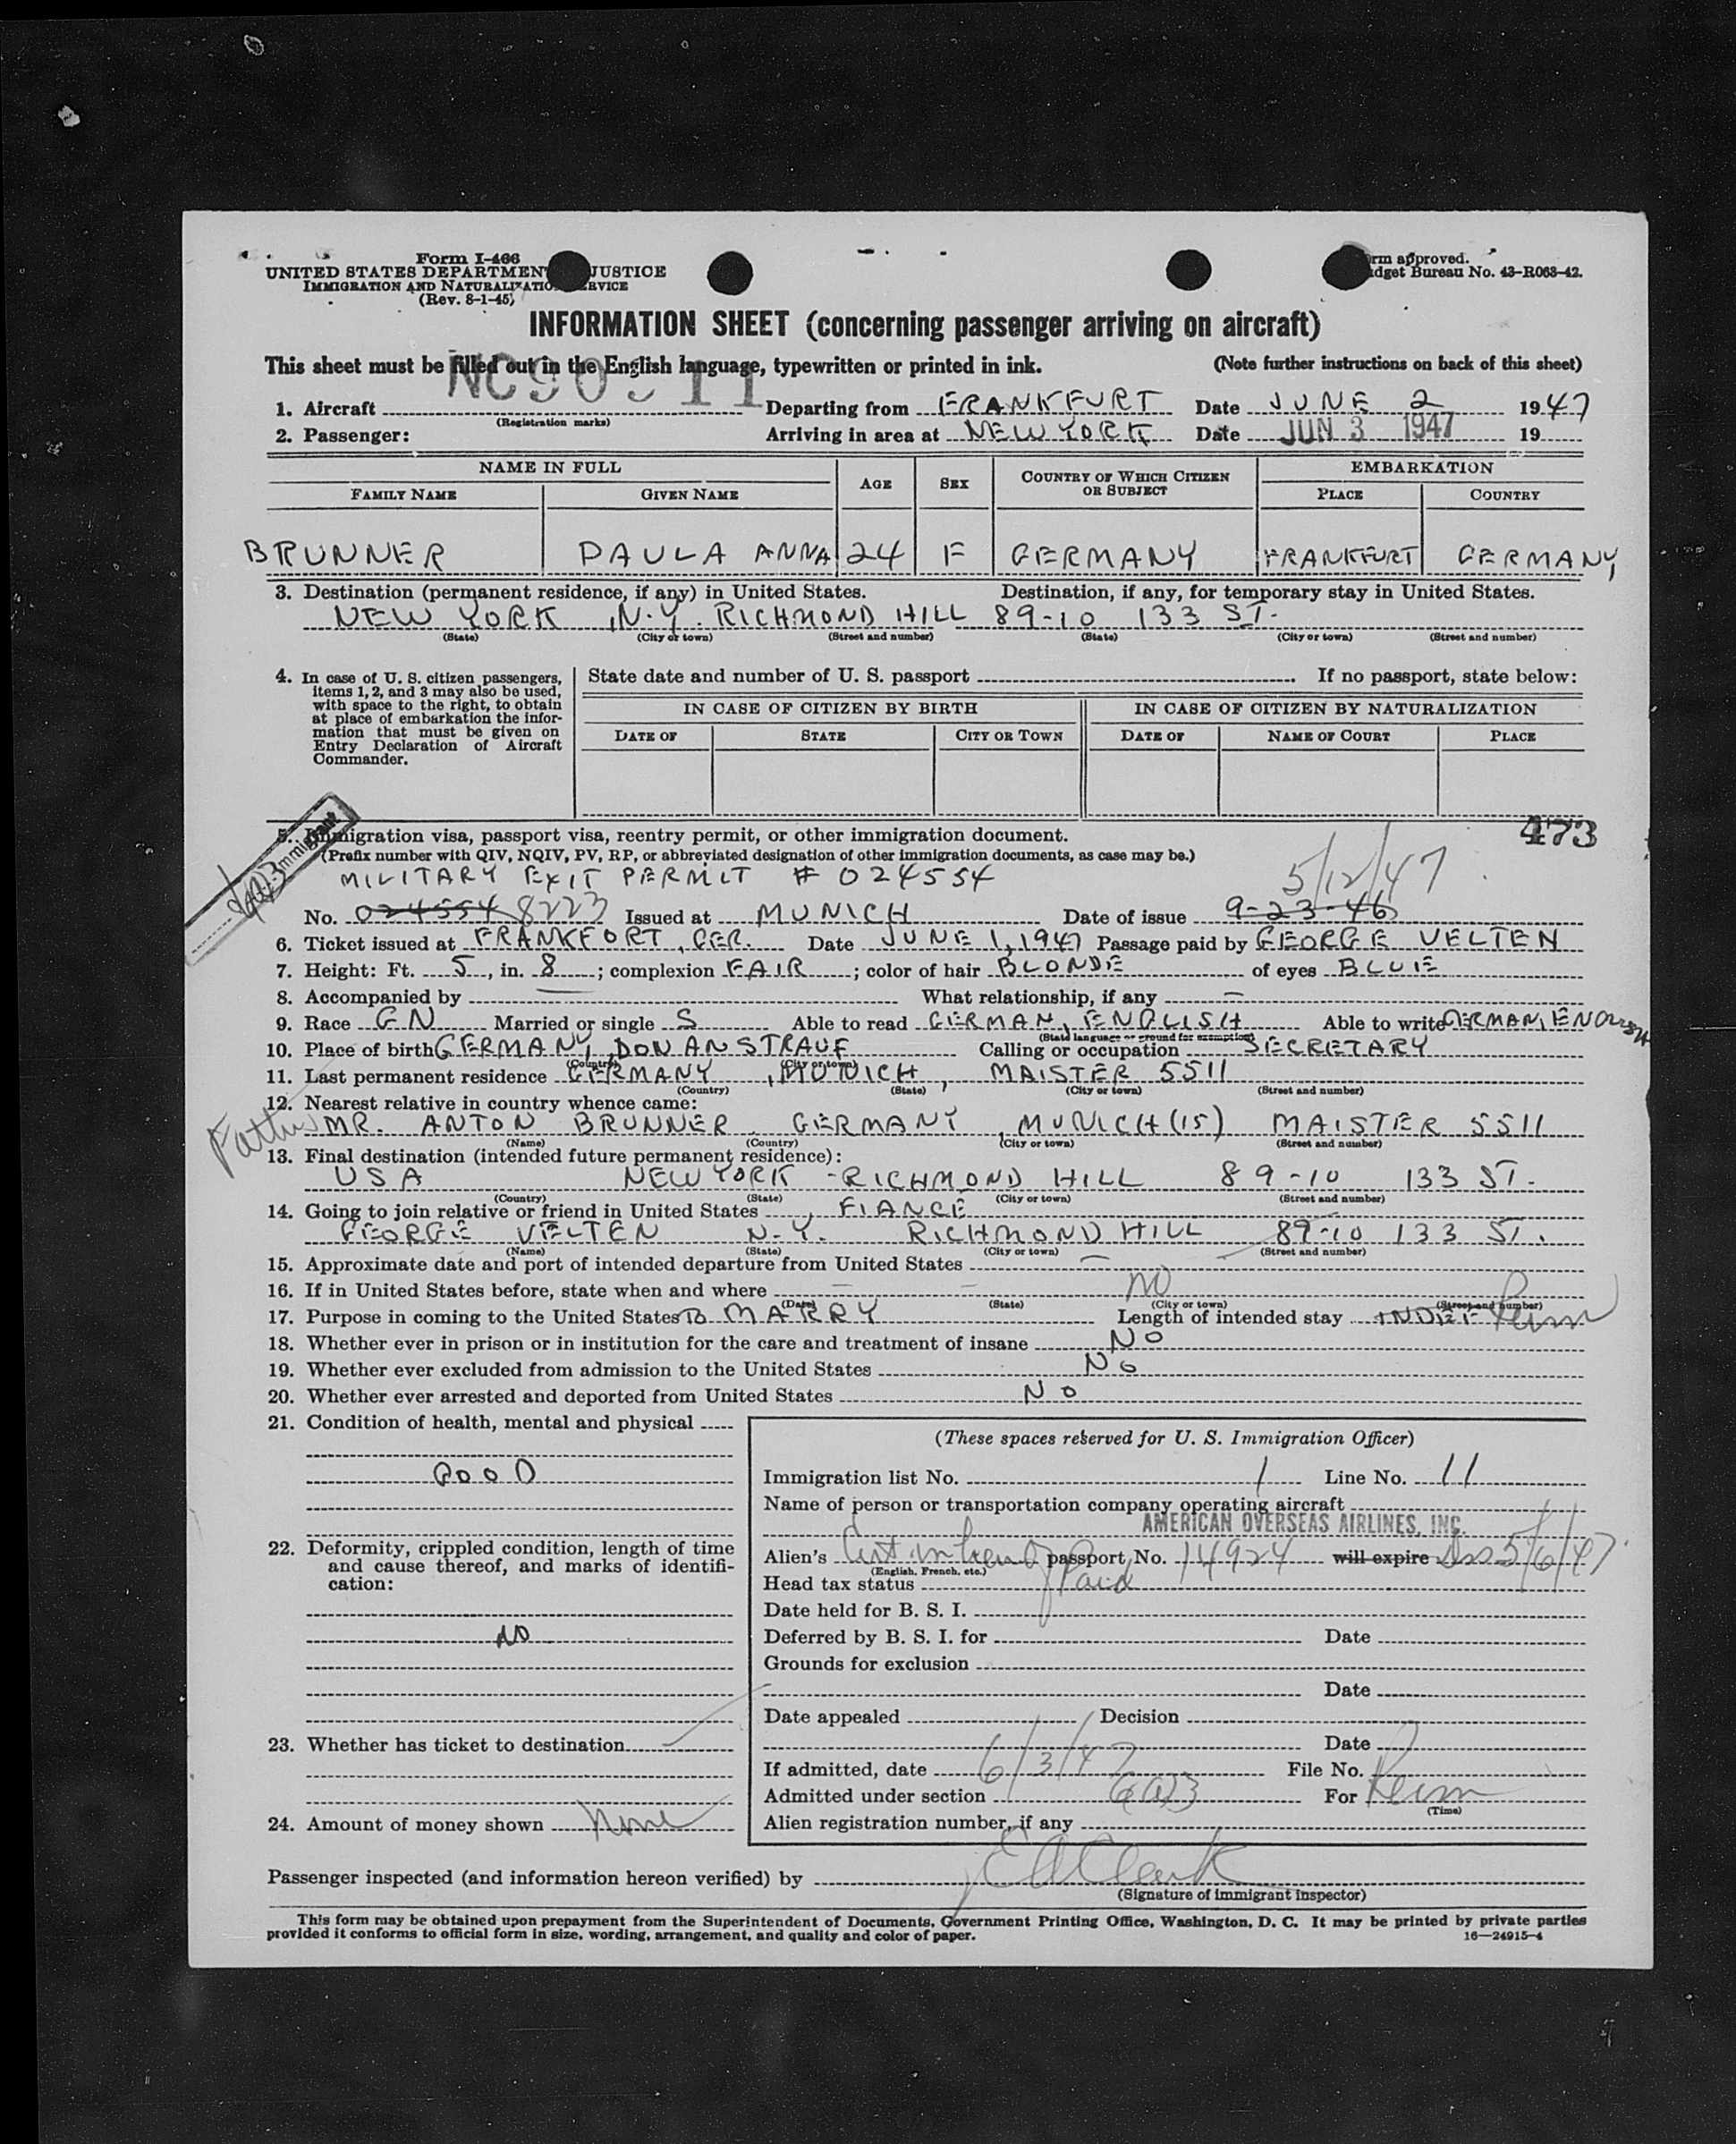 Form I-466
UNITED STATES DEPARTMENT JUSTICE
IMMIGRATION AND NATURALIZATION SERVICE
(Rev. 8-1-45)
Form approved.
Budget Bureau No. 43-R063-42.
INFORMATION SHEET (concerning passenger arriving on aircraft)
This sheet must be filled out in the English language, typewritten or printed in ink. (Note further instructions on back of this sheet)
1. Aircraft Departing from FRANKFURT Date JUNE 2 1947
(Registration marks)
2. Passenger: Arriving in area at NEW YORK Date JUN 3 1947 19
NAME IN FULL AGE SEX COUNTRY OF WHICH CITIZEN OR SUBJECT EMBARKATION
FAMILY NAME GIVEN NAME PLACE COUNTRY
BRUNNER PAULA ANNA 24 F GERMANY FRANKFURT GERMANY
3. Destination (permanent residence, if any) in United States. Destination, if any, for temporary stay in United States.
NEW YORK, N.Y. RICHMOND HILL 89-10 133 ST.
(State) (City or town) (Street and number) (State) (City or town) (Street and number)
4. In case of U. S. citizen passengers, items 1, 2, and 3 may also be used, with space to the right, to obtain at place of embarkation the information that must be given on Entry Declaration of Aircraft Commander.
State date and number of U. S. passport If no passport, state below:
IN CASE OF CITIZEN BY BIRTH IN CASE OF CITIZEN BY NATURALIZATION
DATE OF STATE CITY OR TOWN DATE OF NAME OF COURT PLACE
473
5. Immigration visa, passport visa, reentry permit, or other immigration document.
(Prefix number with QIV, NQIV, PV, RP, or abbreviated designation of other immigration documents, as case may be.)
Immigrant
MILITARY EXIT PERMIT # 024554 5/12/47
No. 024554 8223 Issued at MUNICH Date of issue 9-23-46
6. Ticket issued at FRANKFORT, GER. Date JUNE 1, 1947 Passage paid by GEORGE VELTEN
7. Height: Ft. 5, in. 8; complexion FAIR; color of hair BLONDE of eyes BLUE
8. Accompanied by What relationship, if any —
9. Race GN Married or single S Able to read GERMAN, ENGLISH Able to write GERMAN, ENGLISH
(State language or ground for exemption)
10. Place of birth GERMANY, DONANSTRAUF Calling or occupation SECRETARY
(Country) (City or town)
11. Last permanent residence GERMANY, MUNICH, MAISTER 5511
(Country) (State) (City or town) (Street and number)
12. Nearest relative in country whence came:
Father MR. ANTON BRUNNER GERMANY, MUNICH (15) MAISTER 5511
(Name) (Country) (City or town) (Street and number)
13. Final destination (intended future permanent residence):
USA NEW YORK - RICHMOND HILL 89-10 133 ST.
(Country) (State) (City or town) (Street and number)
14. Going to join relative or friend in United States, FIANCÉ
GEORGE VELTEN N.Y. RICHMOND HILL 89-10 133 ST.
(Name) (State) (City or town) (Street and number)
15. Approximate date and port of intended departure from United States —
16. If in United States before, state when and where — — NO
(Date) (State) (City or town) (Street and number)
17. Purpose in coming to the United States TO MARRY Length of intended stay INDEF Perm
18. Whether ever in prison or in institution for the care and treatment of insane NO
19. Whether ever excluded from admission to the United States NO
20. Whether ever arrested and deported from United States NO
21. Condition of health, mental and physical
GOOD
22. Deformity, crippled condition, length of time and cause thereof, and marks of identification:
NO
23. Whether has ticket to destination
24. Amount of money shown None
(These spaces reserved for U. S. Immigration Officer)
Immigration list No. 1 Line No. 11
Name of person or transportation company operating aircraft
AMERICAN OVERSEAS AIRLINES, INC.
Alien's passport No. 14924 will expire Iss 5/6/47
(English, French, etc.)
Head tax status Paid
Date held for B. S. I.
Deferred by B. S. I. for Date
Grounds for exclusion
Date
Date appealed Decision
Date
If admitted, date 6/3/47 File No.
Admitted under section 6(a)3 For Perm
(Time)
Alien registration number, if any
Passenger inspected (and information hereon verified) by E A Clark
(Signature of immigrant inspector)
This form may be obtained upon prepayment from the Superintendent of Documents, Government Printing Office, Washington, D. C. It may be printed by private parties
provided it conforms to official form in size, wording, arrangement, and quality and color of paper. 16—24915-4